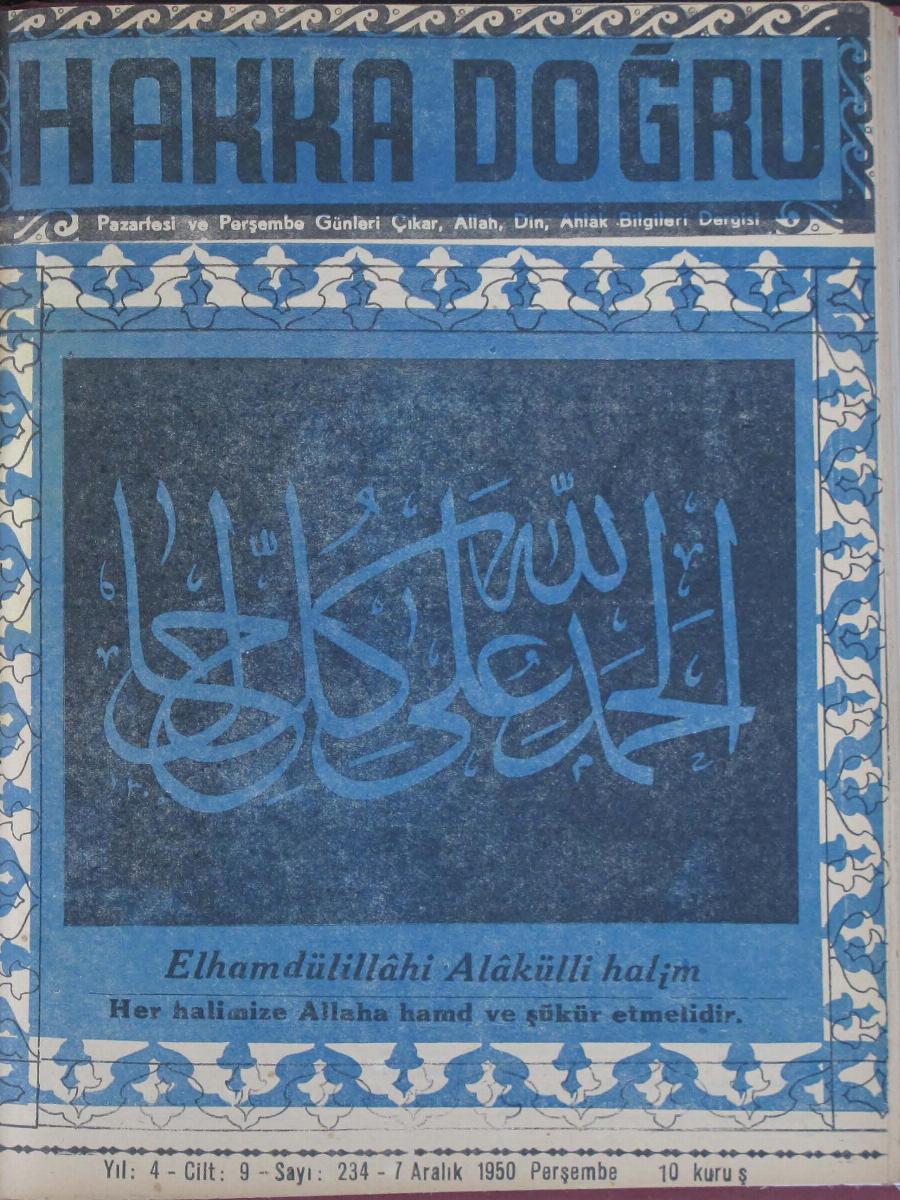 HAKKA DOĞRU
Pazartesi ve Perşembe Günleri Çıkar, Allah, Din, Ahlak Bilgileri Dergisi
الحمد لله على كل حال
Elhamdülillâhi Alâkülli halim
Her halimize Allaha hamd ve şükür etmelidir.
Yıl: 4 - Cilt: 9 - Sayı: 234 - 7 Aralık 1950 Perşembe 10 kuruş